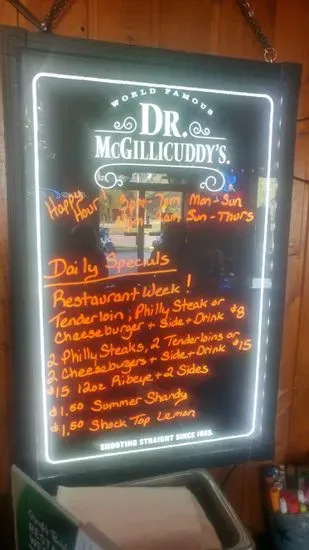 WORLD FAMOUS
DR.
McGILLICUDDY'S.
Happy Hour 3pm - 7pm Mon - Sun
Sun - Thurs
Daily Specials
Restaurant Week!
Tenderloin, Philly Steak or $8
Cheeseburger + Side + Drink
2 Philly Steaks, 2 Tenderloins or
2 Cheeseburgers + Side + Drink $15
$15 12oz Ribeye + 2 Sides
$1.50 Summer Shandy
$1.50 Shock Top Lemon
SHOOTING STRAIGHT SINCE 1865.